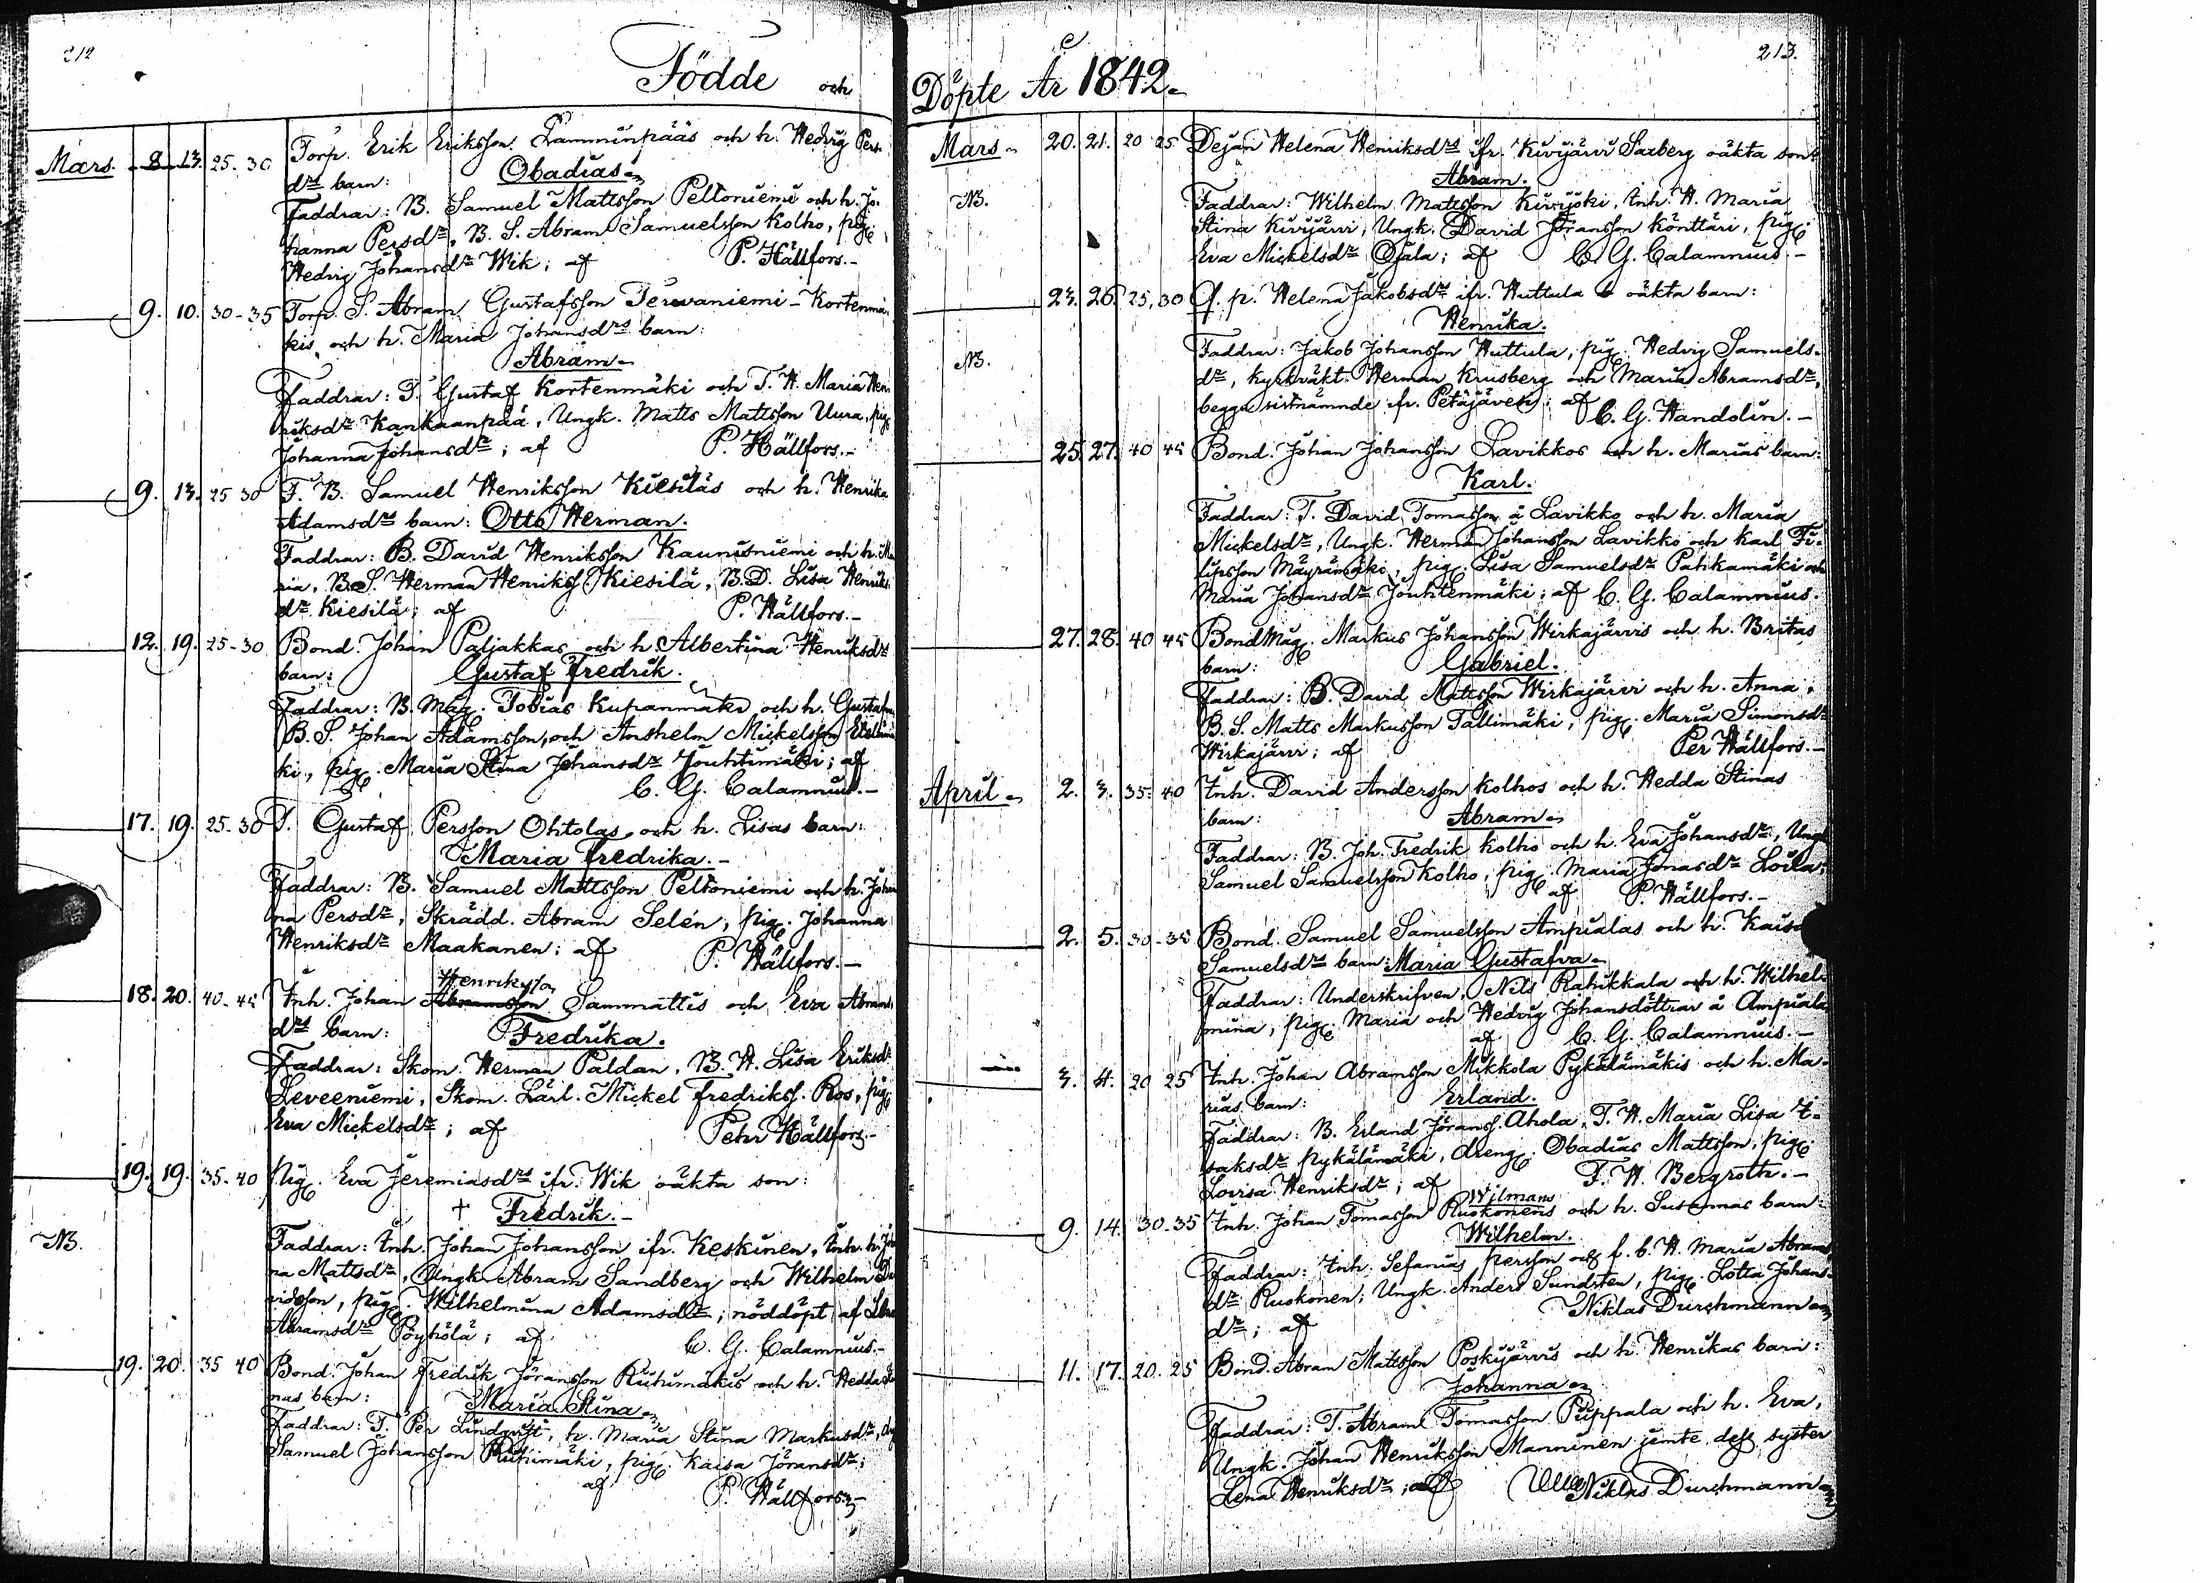 212
Födde och
Mars. 8 13. 25-30 Torp. Erik Eriksson Lamminpääs och h. Hedvig Pers-
drs barn: Obadias
Faddrar: B. Samuel Mattsson Peltoniemi och h. Jo-
hanna Persdr, B. S. Abram Samuelsson Kolho, pig.
Hedvig Johansdr Wik; af P. Hällfors.-
9. 10. 30-35 Torp. S. Abram Gustafsson Terwaniemi-Kortenmä-
kis och h. Maria Johansdrs barn:
Abram
Faddrar: T. Gustaf Kortenmäki och T. H. Maria Hen-
riksdr Kankaanpää, Ungk. Matts Mattsson Uura, pig.
Johanna Johansdr; af P. Hällfors.-
9. 13. 25 30 T. B. Samuel Henriksson Kiesiläs och h. Henrika
Adamsdrs barn: Otto Herman.
Faddrar: B. David Henriksson Kaunisniemi och h. Ma-
ria, B. S. Herman Henrikss Kiesilä, B. D. Lisa Henriks-
dr Kiesilä; af P. Hällfors.-
12. 19. 25-30 Bond. Johan Paljakkas och h. Albertina Henriksdrs
barn: Gustaf Fredrik.
Faddrar: B. Måg. Tobias Kupanmäki och h. Gustafva
B. S. Johan Adamsson, och Anshelm Mickelsson
ki, pig. Maria Stina Johansdr Jouhtimäki; af
C. G. Calamnius.-
17. 19. 25-30 T. Gustaf Persson Ohtolas och h. Lisas barn:
Maria Fredrika.-
Faddrar: B. Samuel Mattsson Peltoniemi och h. Johan-
na Persdr, Skrädd. Abram Selén, pig. Johanna
Henriksdr Maakanen; af P. Hällfors.-
Henriksson
18. 20. 40-45 Inh. Johan Abramsson Sammattis och Eva Abrams-
drs barn: Fredrika.
Faddrar: Skom. Herman Paldan, B. H. Lisa Eriksdr
Leveeniemi, Skom. Lärl. Mickel Fredrikss. Ros, pig.
Eva Mickelsdr; af Petr Hällfors.-
19. 19. 35-40 Pig. Eva Jeremiasdrs ifr. Wik oäkta son:
† Fredrik.-
NB. Faddrar: Inh. Johan Johansson ifr. Keskinen, Inh. h.
na Mattsdr, Ungk. Abram Sandberg och Wilhelm Da-
vidsson, pig. Wilhelmina Adamsdr; nöddöpt af
Abramsdr Pöyhölä; af C. G. Calamnius.-
19. 20. 35 40 Bond. Johan Fredrik Jöransson Riihimäkis och h. Hedda Sti-
nas barn: Maria Stina
Faddrar: T. Per Lindqvist, h. Maria Stina Markusdr,
Samuel Johansson Riihimäki, pig. Kaisa Jöransdr;
af P. Hällfors.-
213.
Döpte År 1842.
Mars 20. 21. 20 25 Dejan Helena Henriksdrs ifr. Kivijärvi Saxberg oäkta son:
Abram.
NB. Faddrar: Wilhelm Mattsson Kivijoki, Inh. H. Maria
Stina Kivijärvi, Ungk. David Jöransson Könttäri, pig.
Eva Mickelsdr Ojala; af C. G. Calamnius.-
23. 26. 25, 30 Q. p. Helena Jakobsdr ifr. Huttula oäkta barn:
Henrika.
NB. Faddrar: Jakob Johansson Huttula, pig. Hedvig Samuels-
dr, Kyrkväkt. Herman Krusberg och Maria Abramsdr,
begge sistnämnde ifr. Petäjävesi; af C. G. Wandolin.-
25. 27. 40 45 Bond. Johan Johansson Lavikkos och h. Marias barn:
Karl.
Faddrar: T. David Tomasson å Lavikko och h. Maria
Mickelsdr, Ungk. Herman Johansson Lavikko och Karl Fi-
lipsson Mäyrämäki, pig. Lisa Samuelsdr Pahkamäki och
Maria Johansdr Jouhtenmäki; af C. G. Calamnius.
27. 28. 40 45 Bond Måg. Markus Johansson Wirkajärvis och h. Britas
barn: Gabriel.
Faddrar: B. David Mattsson Wirkajärvi och h. Anna,
B. S. Matts Markusson Tallimäki, pig. Maria Simonsdr
Wirkajärvi; af Per Hällfors.-
April 2. 3. 35-40 Inh. David Andersson Kolhos och h. Hedda Stinas
barn: Abram
Faddrar: B. Joh. Fredrik Kolho och h. Eva Johansdr, Ungk.
Samuel Samuelsson Kolho, pig. Maria Jonasdr Loila;
af P. Hällfors.-
2. 5. 30-35 Bond. Samuel Samuelsson Ampialas och h. Kaisa
Samuelsdrs barn: Maria Gustafva
Faddrar: Underskrifven, Nils Rahikkala och h. Wilhel-
mina, pig. Maria och Hedvig Johansdöttrar å Ampiala
af C. G. Calamnius.-
3. 4. 20 25 Inh. Johan Abramsson Mikkola Pykälämäkis och h. Ma-
rias barn: Erland.
Faddrar: B. Erland Jöranss. Ahola, T. H. Maria Lisa I-
saksdr Pykälämäki, dreng. Obadias Mattsson, pig.
Lovisa Henriksdr; af F. H. Bergroth.-
Wilmans
9. 14. 30-35 Inh. Johan Tomasson Ruokonens och h. Susannas barn:
Wilhelm.
Faddrar: Inh. Sefanias Persson och f. b. H. Maria Abrams-
dr Ruokonen; Ungk. Anders Sundsten, pig. Lotta Johans-
dr; af Niklas Durchmann
11. 17. 20. 25 Bond. Abram Mattsson Poskijärvis och h. Henrikas barn:
Johanna
Faddrar: T. Abram Tomasson Piippala och h. Eva,
Ungk. Johan Henriksson Manninen jemte dess syster
Lena Henriksdr; af Niklas Durchmann